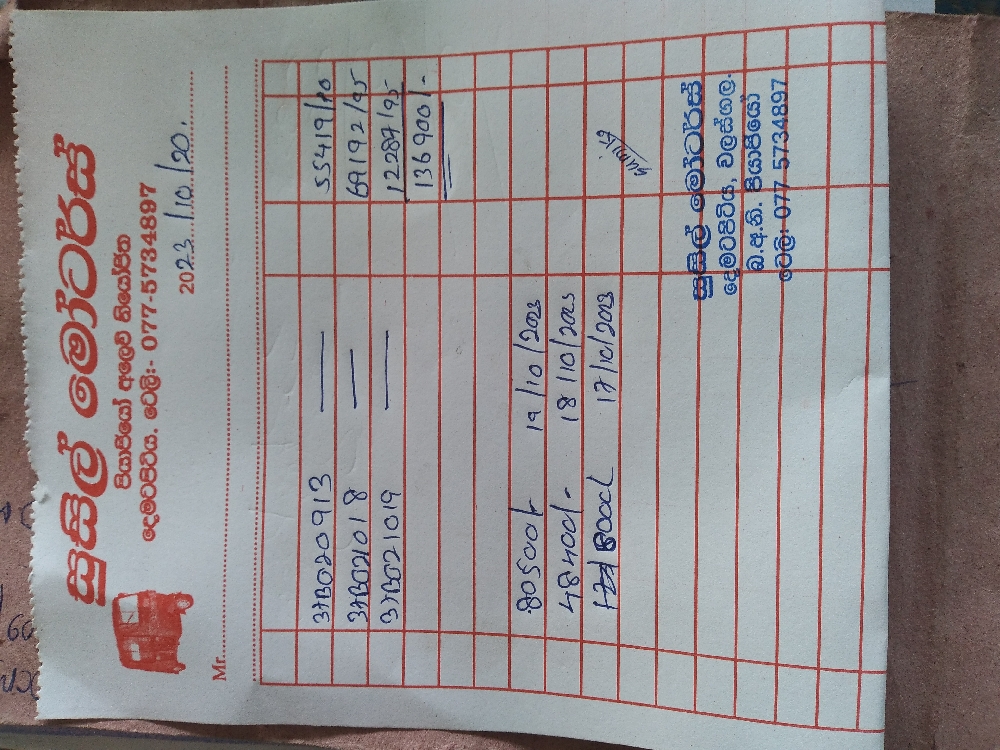 සුසිල් මෝටර්ස්
පියාජියෝ අලෙවි නියෝජිත
දෙමටපිටිය. ටෙලි:- 077-5734897
2023/10/20.
Mr.
37B020913 — 55419/10
37B021018 — 69192/95
37B021019 — 12287/95
136900/-
80500/- 19/10/2023
48400/- 18/10/2023
8000/ 17/10/2023
සුසිල් මෝටර්ස්
දෙමටපිටිය, වලස්ගල.
බ.අ.නි. පියාජියෝ
ටෙලි: 077 5734897